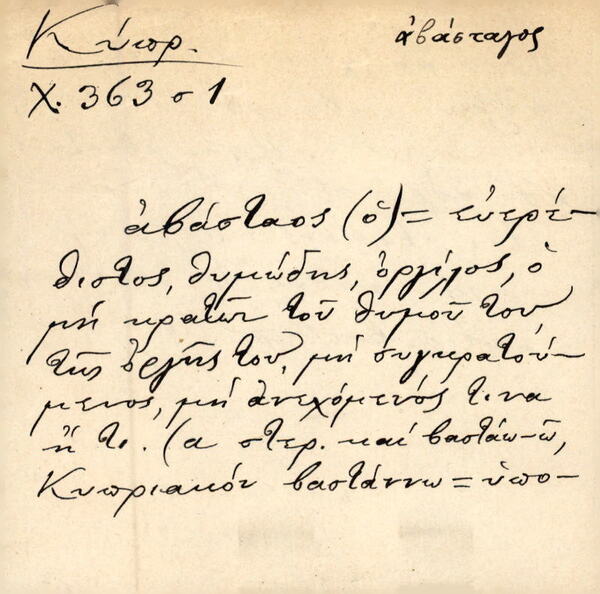 Κύπρ.
ἀβάσταγος
Χ. 363 σ 1
ἀβάσταος (ὁ) = εὐερέ-
θιστος, θυμώδης, ὀργίλος, ὁ
μὴ κρατῶν τοῦ θυμοῦ του,
τῆς ὀργῆς του, μὴ συγκρατού-
μενος, μὴ ἀνεχόμενός τινα
ἤ τι. (α στερ. καὶ βαστάω-ῶ,
Κυπριακόν βαστάννω = ὑπο-